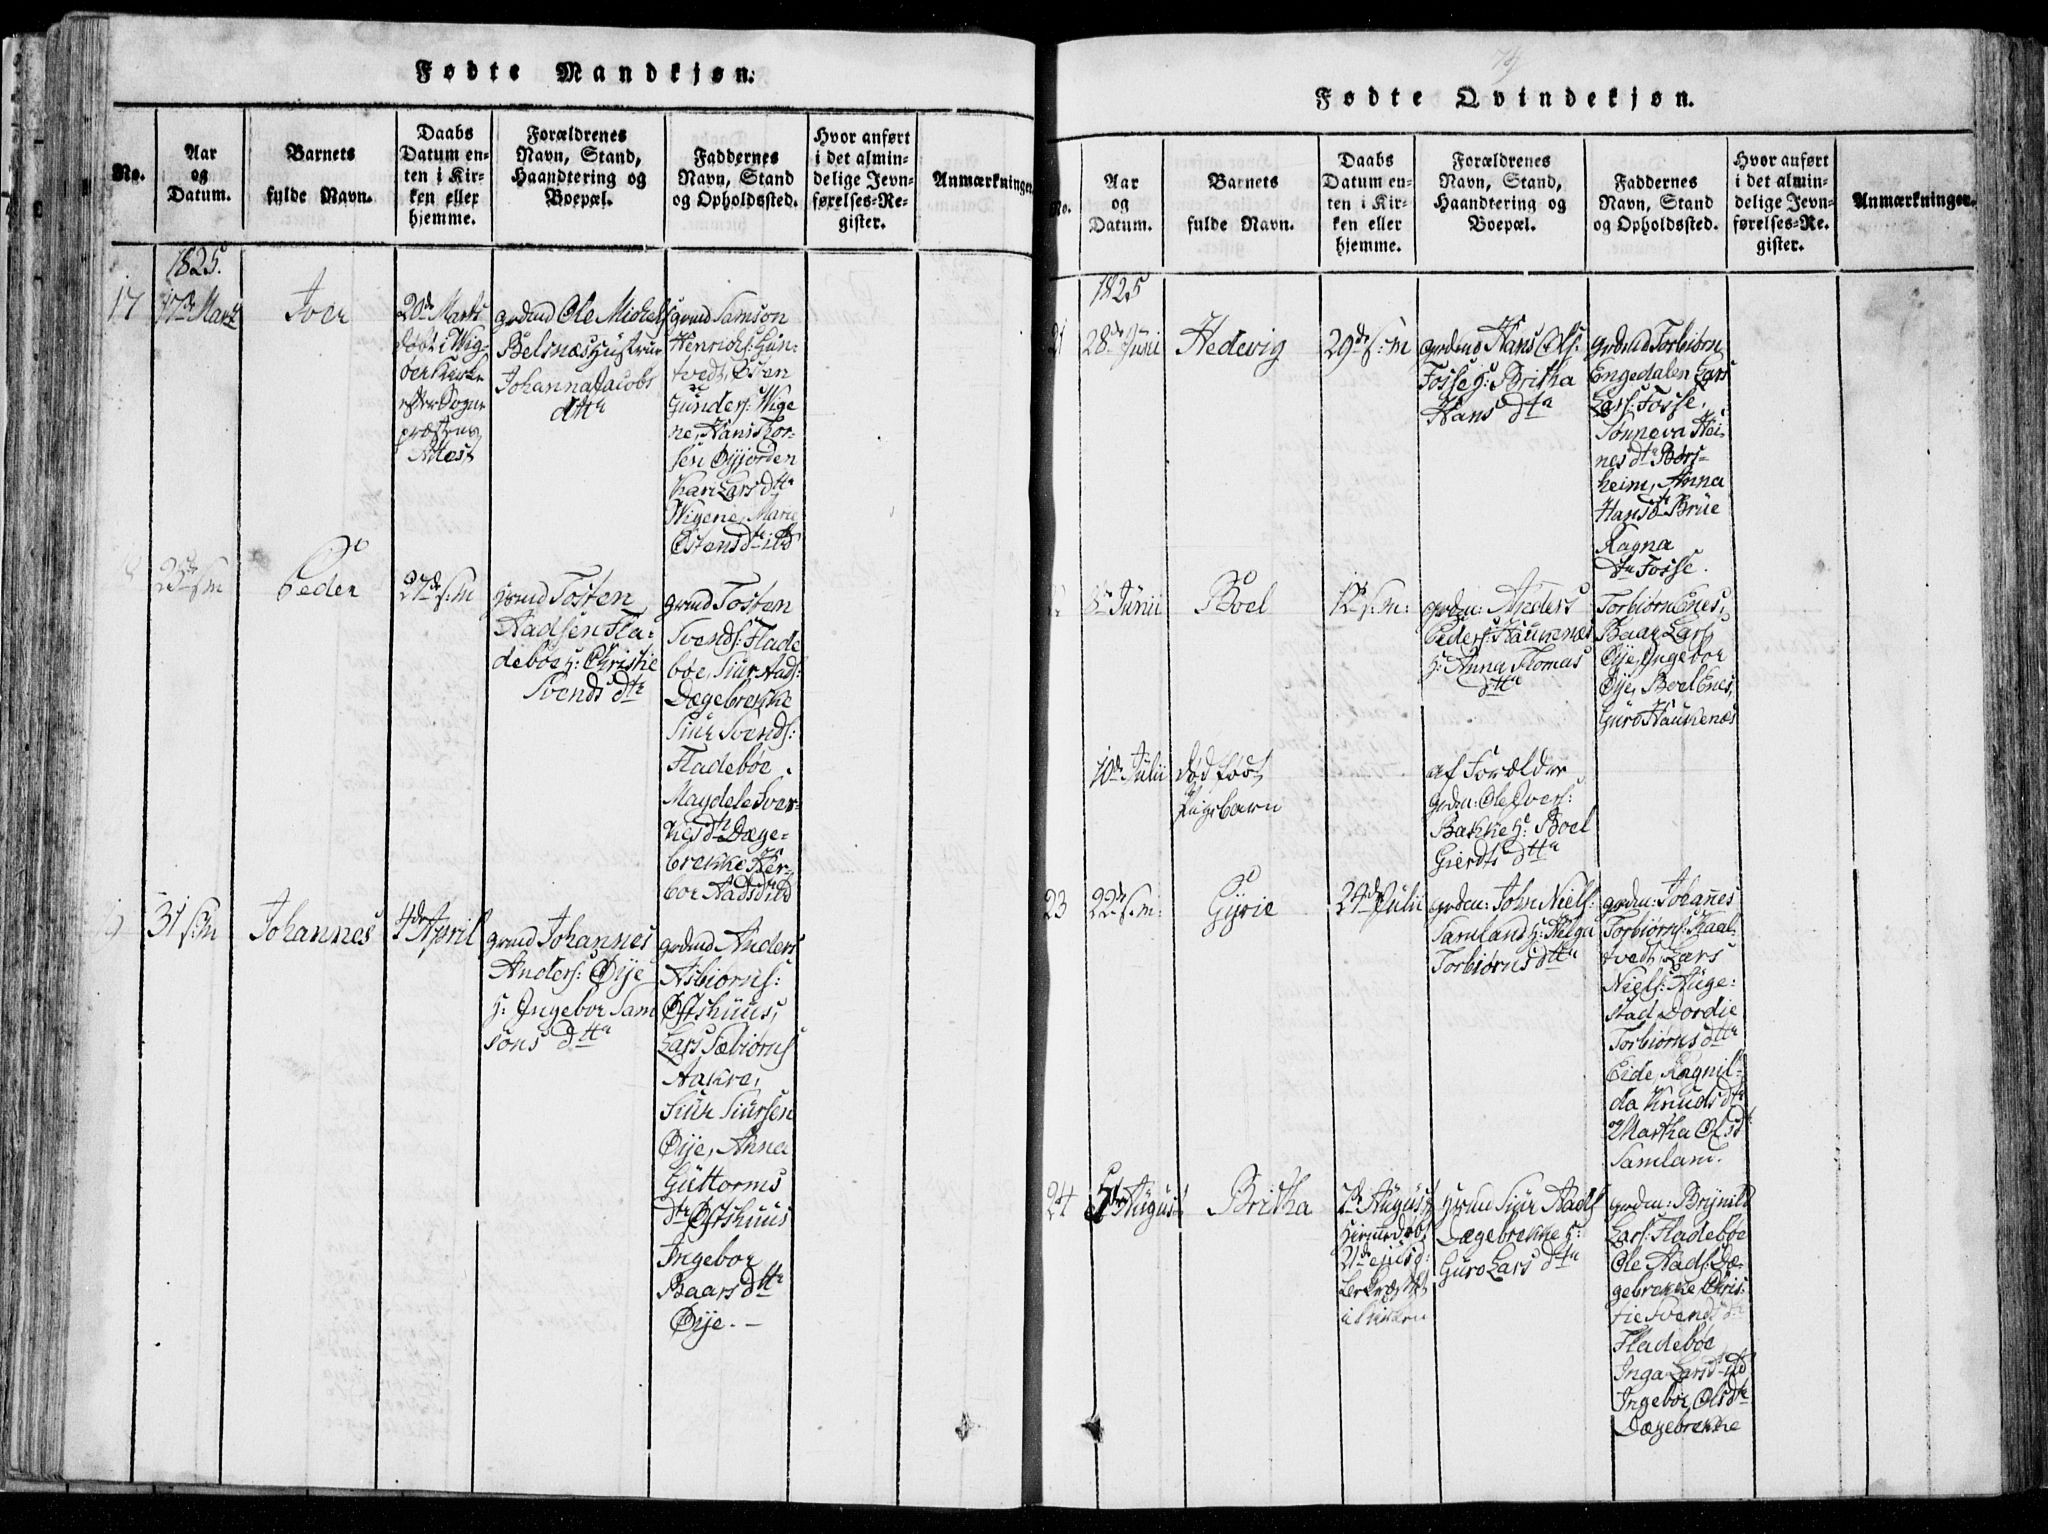 Fødte Mandkjøn.
No.
Aar
og
Datum.
Barnets
fulde Navn.
Daabs
Datum en-
ten i Kir-
ken eller
hjemme.
Forældrenes
Navn, Stand,
Haandtering og
Boepæl.
Faddernes
Navn, Stand
og Opholdssted.
Hvor anført
i det almin-
delige Jevn-
førelses-Re-
gister.
Anmærkninger.
1825.
17
17de Marts
Iver
20de Marts
døbt i Wig-
øer Kirke
efter Sogne
præstens
Attest
grdmd Ole Michels
Belsnæs Hustrue
Johanna Jacobs
dtr
grmd Samson
Henrichs: Hun-
tvedt, Østen
Gunders: Wige
ne, Hans Tor-
sen Øyjorden
Kari Lars dtr
Wigene, Marie
Østensdtr ibd
25de s:m
Peder
27de s:m
grmd Tosten
Aadsen Fla-
debøe H: Christie
Svends dtr
grmd Tosten
Svends: Flade
bøe, Siur Aads:
Dægebrekke
Siur Svends:
Fladebøe,
Magdele Sver-
kes dtr Dæge-
brekke Her-
bor Aadsdr ibd
31 s:m
Johannes
4de April
grmd Johannes
Anders: Øye
H: Ingebor Sam
sons dtr
grdmd Anders
Asbiørns:
Øfshuus,
Lars Sæbiørns
Aakre,
Siur Siursen
Øye, Anna
Guttorms
dtr Øfshuus
Ingebor
Baars dtr
Øye. –
Fødte Qvindekjøn.
No.
Aar
og
Datum.
Barnets
fulde Navn.
Daabs
Datum en-
ten i Kir-
ken eller
hjemme.
Forældrenes
Navn, Stand,
Haandtering og
Boepæl.
Faddernes
Navn, Stand
og Opholdssted.
Hvor anført
i det almin-
delige Jevn-
førelses-Re-
gister.
Anmærkninger.
1825
21
28de Juni
Hedevig
29de s:m
grdmd Hans Ols:
Fosse H: Britha
Hans dtr
grdmd Torbiørn
Engedalen Lars
Lars: Fosse,
Sønneva Hei-
nesdtr Børs-
heim, Anna
Hansdtr Brue
Ragna
dtr Fosse.
Junii
Boel
12te s:m:
grdm: Anders
Peders: Haukenæs
H: Anna Thomas
dtr
Torbiørn Enes,
Baar Lars
Øye, Ingebor
Øye, Boel Enes,
Guro Haukenæs
10de Julii
død født
Pigebarn
af Forældre
grdm: Ole Ivers:
Bakke H: Boel
Gierdts dtr
23
22de s:m:
Gyrie
24de Julii
grdm: John Niels:
Samland H: Helga
Torbiørns dtr
grdm: Johañes
Torbiørns: Kaal-
tvedt, Lars
Niels: Auge-
stad Dordie
Torbiørns dtr
Eide, Ragnil-
da Knuds dtr
og Martha Olsd
Samland.
24
5te August
Britha
7de August
hiemmedøbt
21de ejusd:
i Kirken
grmd Siur Aads
Dægebrekke H:
Guro Lars dtr
grdm: Brynild
Lars: Fladebøe
Ole Aads: Dæ-
gebrekke, Chris-
tie Svends dtr
Fladebøe
Inga Larsdtr ibd
Ingebor Olsdtr
Dægebrekke